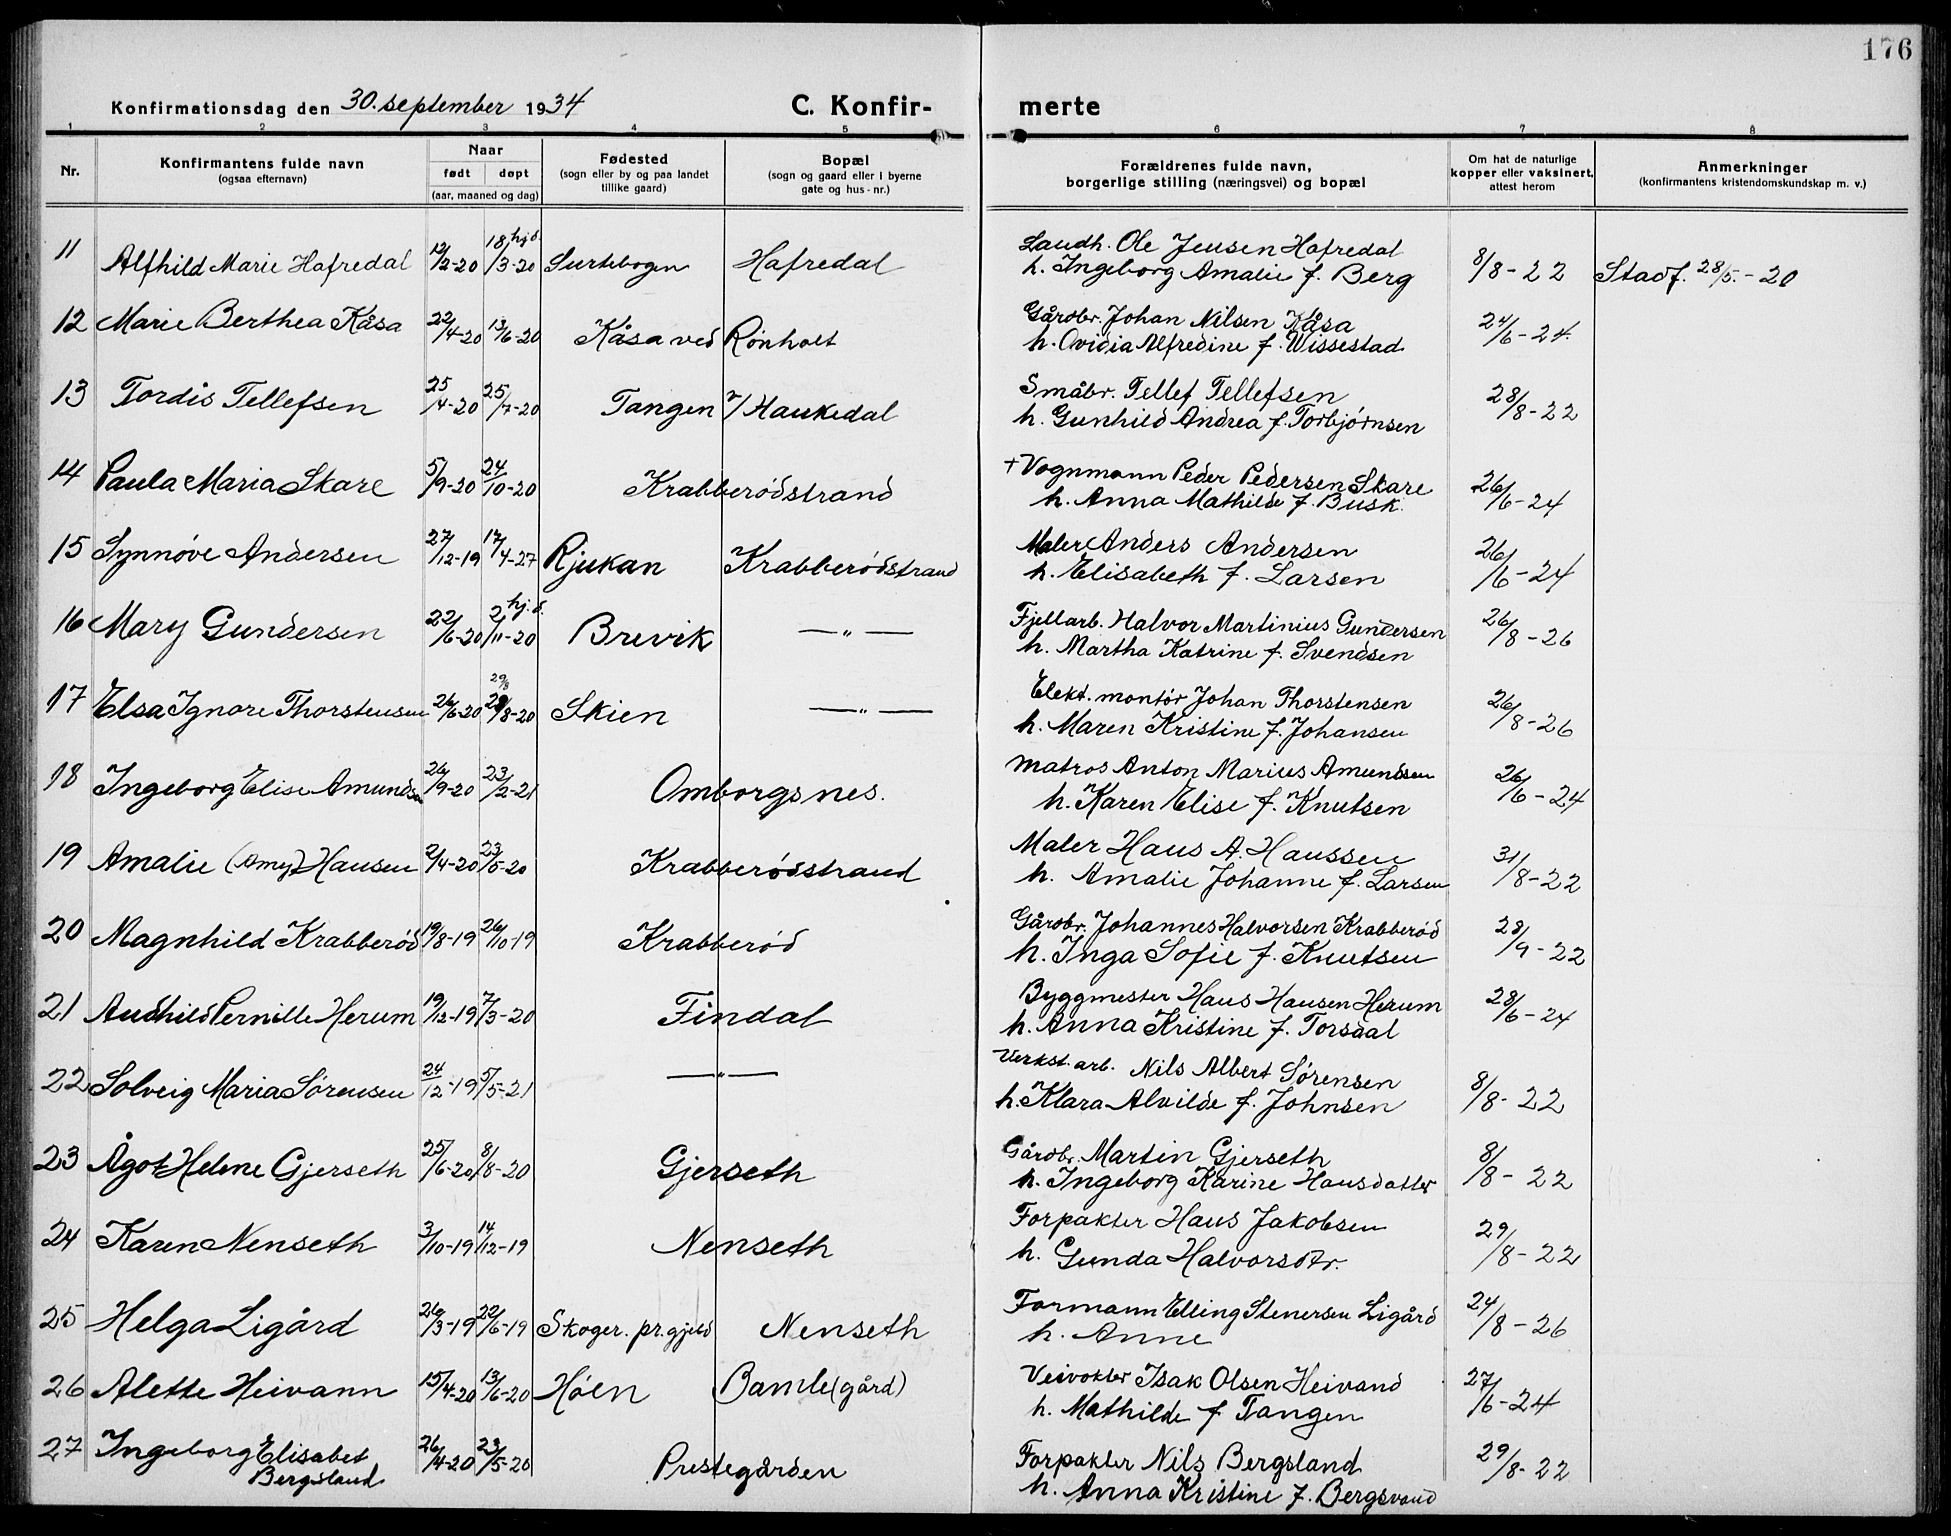 176
Konfirmationsdag den 30. september 1934 C. Konfir- merte
1 2 3 4 5 6 7 8
Nr. Konfirmantens fulde navn (ogsaa efternavn) Naar født døpt (aar, maaned og dag) Fødested (sogn eller by og paa landet tillike gaard) Bopæl (sogn og gaard eller i byerne gate og hus-nr.) Forældrenes fulde navn, borgerlige stilling (næringsvei) og bopæl Om hat de naturlige kopper eller vaksinert, attest herom Anmerkninger (konfirmantens kristendomskundskap m. v.)
11 Alfhild Marie Hafredal 12/2-20 18/3-20 hj.d. Surtebogen Hafredal Landh. Ole Jensen Hafredal 8/8-22 Stadf. 28/5.-20
h. Ingeborg Amalie f. Berg
12 Marie Berthea Kåsa 22/4-20 13/6-20 Kåsa ved Rønholt Gårdbr. Johan Nilsen Kåsa 24/6-24.
h. Ovidia Alfredine f. Wissestad
13 Tordis Tellefsen 25/4-20 25/7-20 Tangen v/ Haukedal Småbr. Tellef Tellefsen 28/8-22
h. Gunhild Andrea f. Torbjørnsen
14 Paula Maria Skare 5/9-20 24/10-20 Krabberødstrand + Vognmann Peder Pedersen Skare 26/6-24
h. Anna Mathilde f. Busk.
15 Synnøve Andersen 27/12-19 17/4-27 Rjukan Krabberødstrand Maler Anders Andersen 26/6-24
h. Elisabeth f. Larsen
16 Mary Gundersen 22/6-20 2/11-20 hj.d. Brevik —"— Fjellarb. Halvor Martinius Gundersen 26/8-26
h. Martha Katrine f. Svendsen
17 Elsa Ignore Thorstensen 26/6-20 29/8 29/8-20 Skien —"— Elekt. montør Johan Thorstensen 26/8-26
h. Maren Kristine f. Johansen
18 Ingeborg Elise Amundsen 26/9-20 23/2-21 Omborgsnes. Matros Anton Marius Amundsen 26/6-24
h. Karen Elise f. Knutsen
19 Amalie (Amy) Hansen 2/4-20 23/5-20 Krabberødstrand Maler Hans A. Hanssen 31/8-22
h. Amalie Johanne f. Larsen
20 Magnhild Krabberød 19/8-19 26/10-19 Krabberød Gårdbr. Johannes Halvorsen Krabberød 28/9-22
h. Inga Sofie f. Knutsen
21 Audhild Pernille Herum 19/12-19 7/3-20 Findal Byggmester Hans Hansen Herum 28/6-24
h. Anna Kristine f. Torsdal
22 Solveig Maria Sørensen 24/12-19 5/5-21 —"— Verkst. arb. Nils Albert Sørensen 8/8-22
h. Klara Alvilde f. Johnsen
23 Ågot Helene Gjerseth 25/6-20 8/8-20 Gjerseth Gårdbr. Martin Gjerseth 8/8-22
h. Ingeborg Karine Hansdatter
24 Karen Nenseth 3/10-19 14/12-19 Nenseth Forpakter Hans Jakobsen 29/8-22
h. Gunda Halvorsdtr.
25 Helga Ligård 26/3-19 22/6-19 Skoger. pr.gjeld Nenseth Formann Elling Stenersen Ligård 24/8-26
h. Anne
26 Alette Heivann 15/4-20 13/6-20 Høen Bamle (gård) Veivokter Isak Olsen Heivand 27/6-24
h. Mathilde f Tangen
27 Ingeborg Elisabet 26/4-20 23/5-20 Prestegården Forpakter Nils Bergsland 29/8-22
Bergsland h. Anna Kristine f. Bergsvand